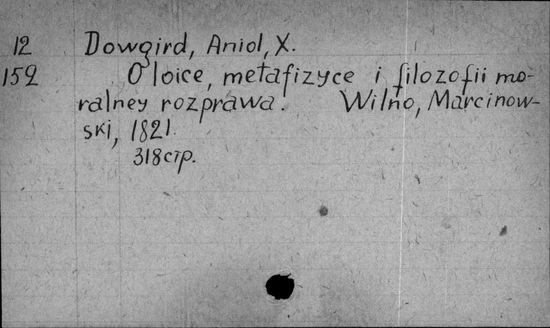 12 Dowgird, Anioł, X.
152 O loice, metafizyce i filozofii mo-
ralney rozprawa. Wilno, Marcinow-
ski, 1821.
318 стр.